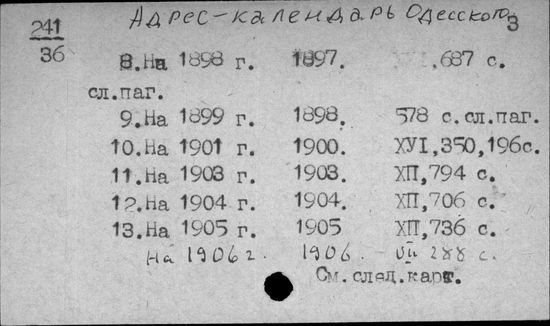 Адрес-календарь Одесского 3
241
36
8.На 1898 г. 1897. ,687 с.
сл.паг.
9.На 1899 г. 1898. 578 с.сл.паг.
10.На 1901 г. 1900. ХУІ,350,196с.
11.На 1903 г. 1903. ХП,794 с.
12.На 1904 г. 1904. ХП,706 с.
13.На 1905 г. 1905 ХП,736 с.
На 1906 г. 1906. 288 с.
См.след.карт.